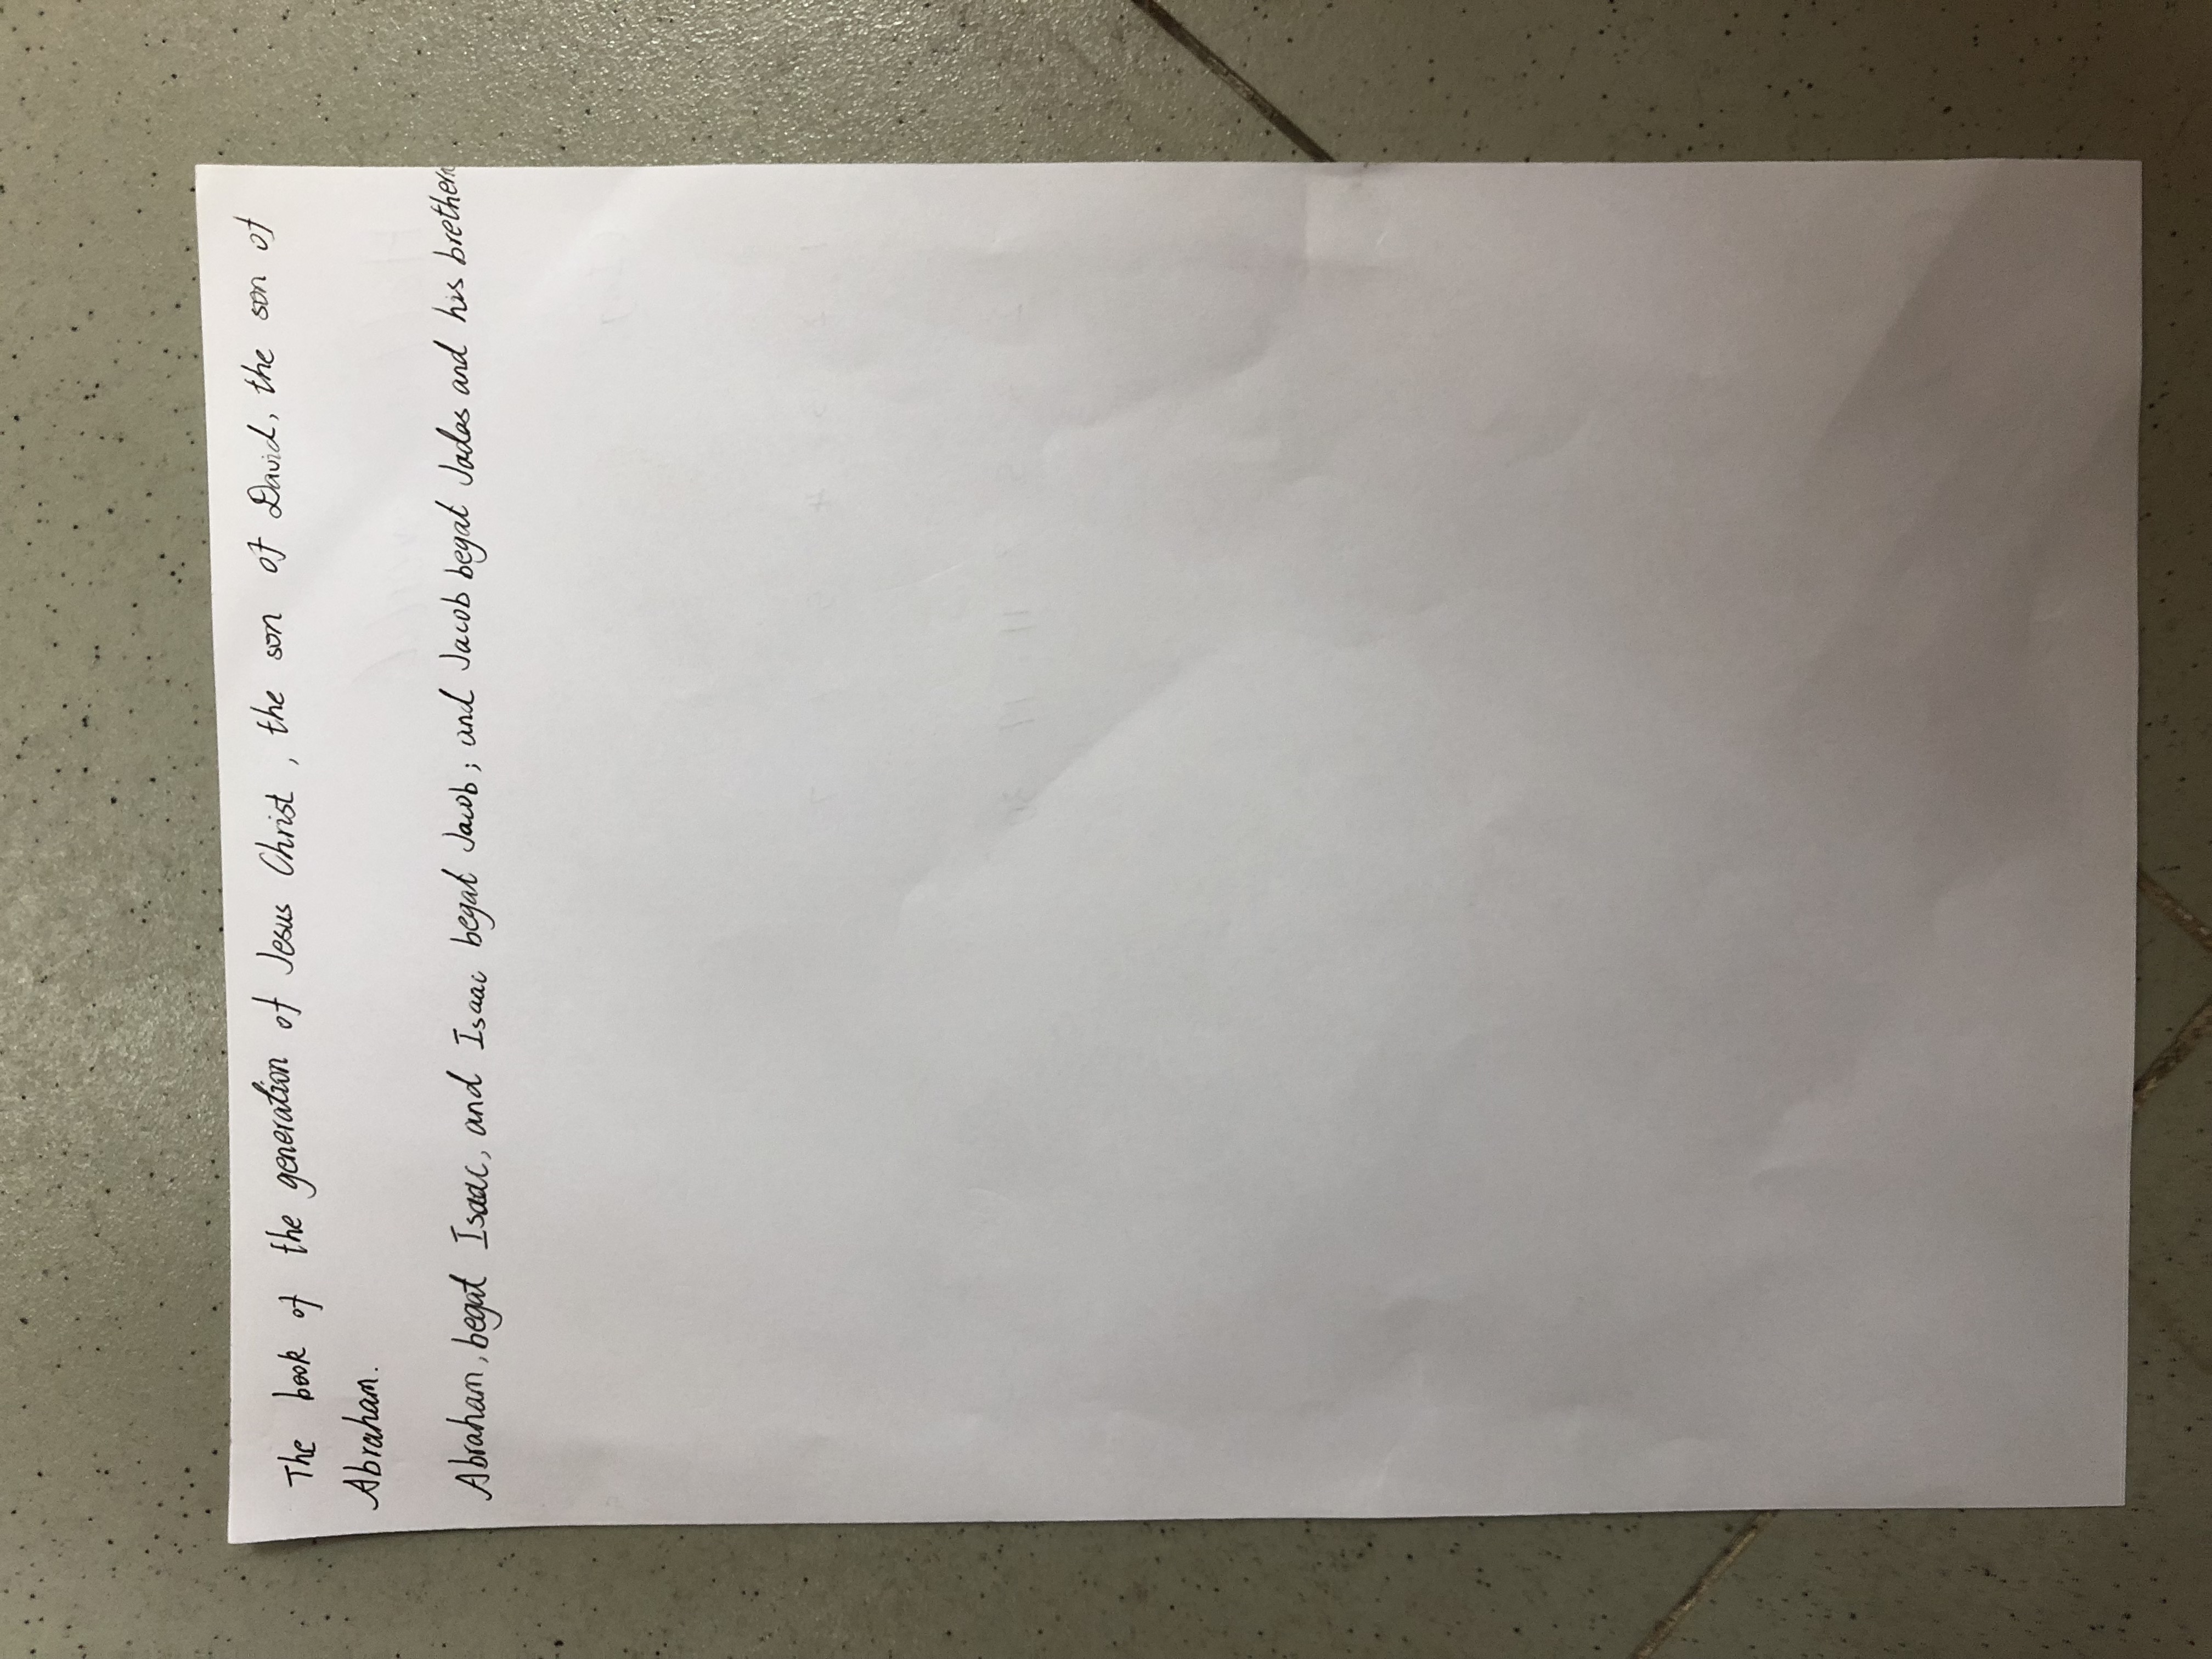 The book of the generation of Jesus Christ , the son of David, the son of
Abraham.
Abraham, begat Isaac, and Isaac begat Jacob; and Jacob begat Jadas and his brethern